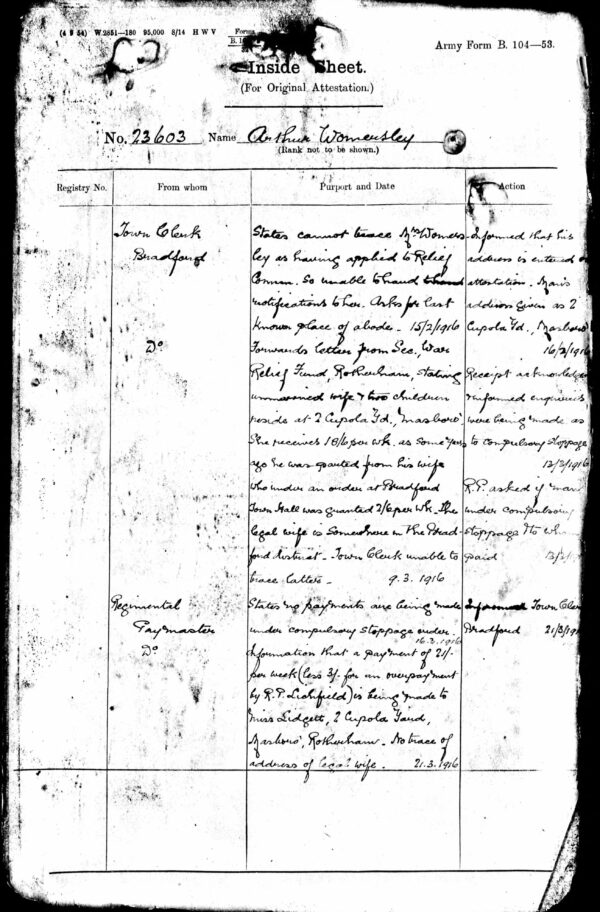 (4 9 54) W.2851—180 95,000 8/14 H W V
Forms
B. 10
Army Form B. 104—53.
Inside Sheet.
(For Original Attestation.)
No. 23603 Name Arthur Womersley
(Rank not to be shown.)
Registry No. From whom Purport and Date Action
Town Clerk States cannot trace Mrs Womers- Informed that his
Bradford ley as having applied to Relief address is entered on
Comm. So unable to hand attestation. Man's
notifications to her. Asks for last address given as 2
known place of abode - 15/2/1916 Cupola Yd, Masboro'
Do Forwards letters from Sec., War 16/2/1916
Relief Fund, Rotherham, stating Receipt acknowledged
unmarried wife & two children & informed enquiries
reside at 2 Cupola Yd, Masboro' were being made as
She receives 18/6 per wk. as some years to compulsory stoppage
ago he was parted from his wife 13/3/1916
who under an order at Bradford R.P. asked if man
Town Hall was granted 2/6 per wk. The under compulsory
legal wife is somewhere in the Brad- stoppage & to whom
ford district - Town Clerk unable to paid 13/3/
trace latter - 9.3.1916
Regimental States no payments are being made Informed Town Clerk
Paymaster under compulsory stoppage order. Bradford 21/3/191
16.3.1916
Do Information that a payment of 21/-
per week (less 3/- for an overpayment
by R.P. Lichfield) is being made to
Miss Lidgett, 2 Cupola Yard,
Masboro', Rotherham. No trace of
address of legal wife. 21.3.1916